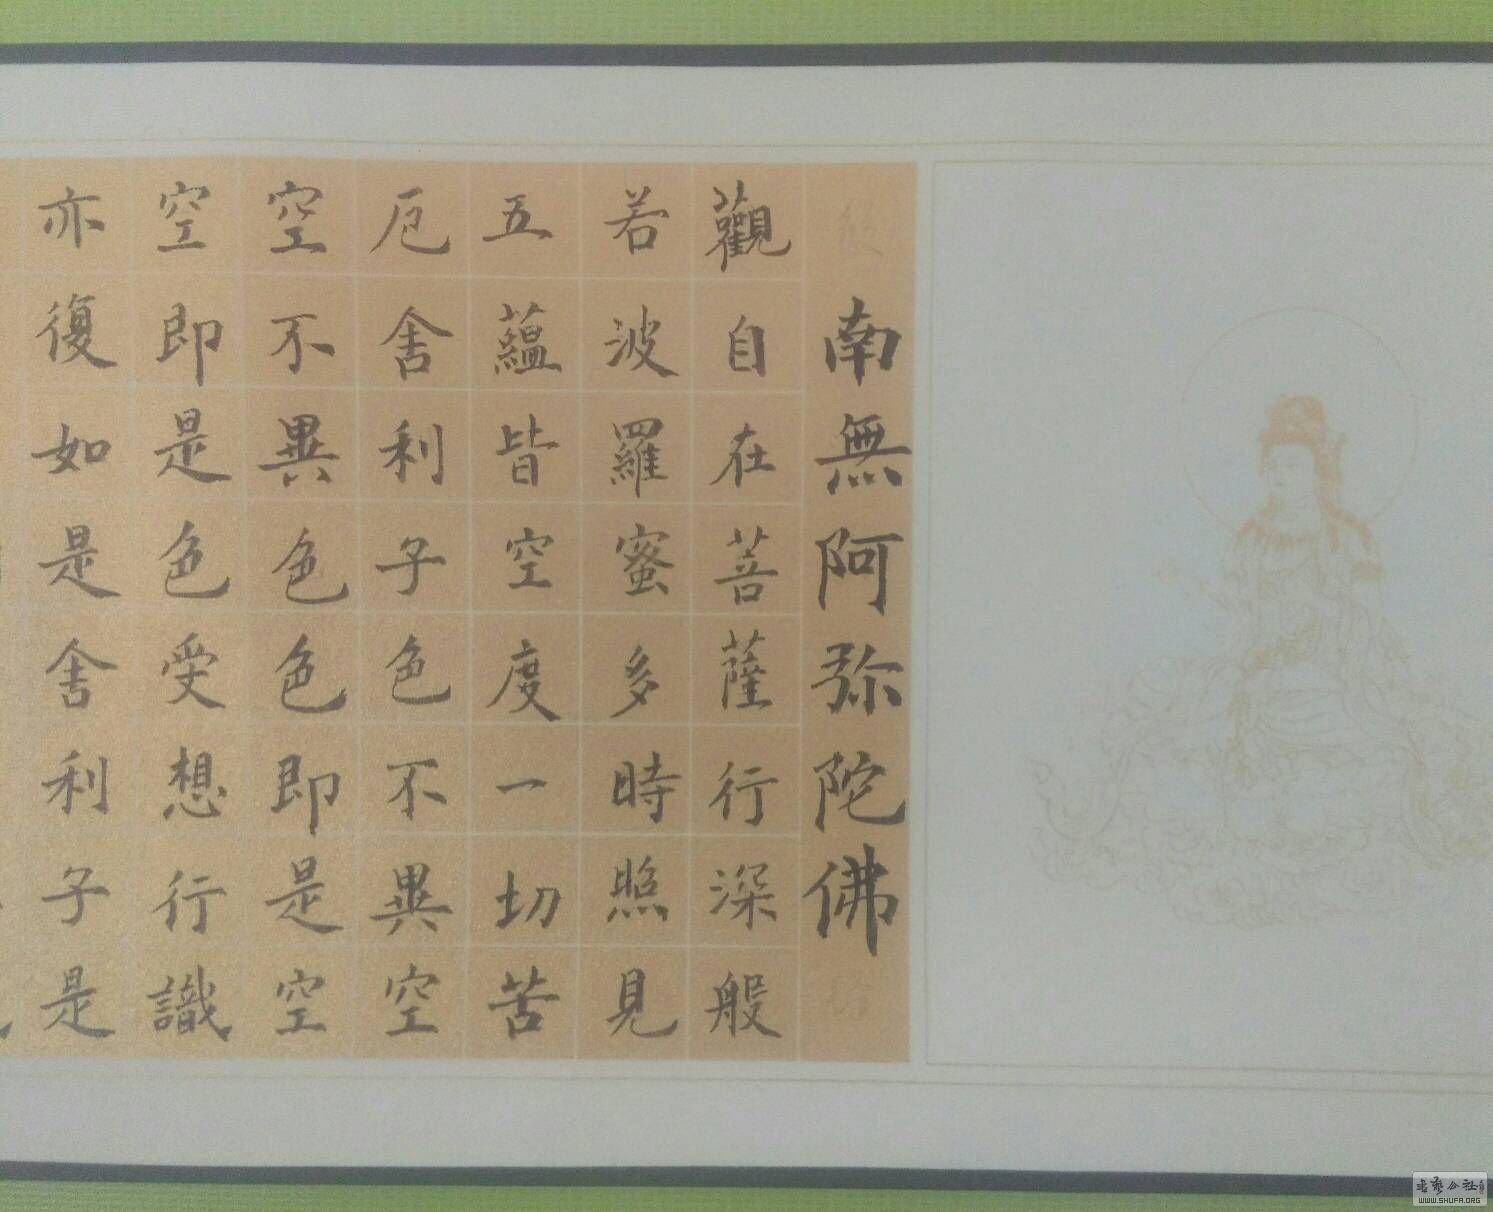 南無阿弥陀佛
觀自在菩薩行深般
若波羅蜜多時照見
五蘊皆空度一切苦
厄舍利子色不異空
空不異色色即是空
空即是色受想行識
亦復如是舍利子是
书艺公社
WWW.SHUFA.ORG